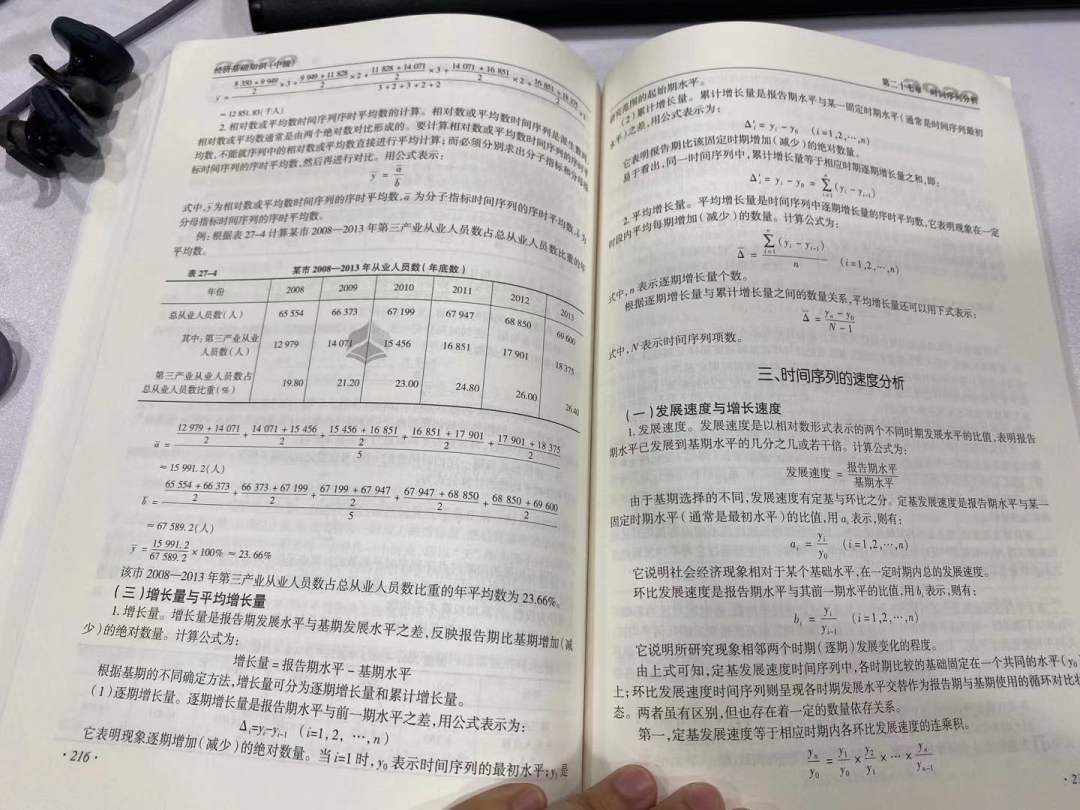 经济基础知识(中级)
y = (8 350 + 9 949)/2 ×3 + (9 949 + 11 828)/2 ×2 + (11 828 + 14 071)/2 ×3 + (14 071 + 16 851)/2 ×2 +
3 + 2 + 3 + 2 + 2
≈ 12 851.83(千人)
2.相对数或平均数时间序列序时平均数的计算。相对数或平均数时间序列是派生数列,
相对数或平均数通常是由两个绝对数对比形成的。要计算相对数或平均数时间序列的序时平
均数,不能就序列中的相对数或平均数直接进行平均计算;而必须分别求出分子指标和分母指
标时间序列的序时平均数,然后再进行对比。用公式表示:
y = a/b
式中,y为相对数或平均数时间序列的序时平均数,a为分子指标时间序列的序时平均数,b为
分母指标时间序列的序时平均数。
例:根据表27-4计算某市2008—2013年第三产业从业人员数占总从业人员数比重的年
平均数。
表27-4 某市2008—2013年从业人员数(年底数)
年份 2008 2009 2010 2011 2012 2013
总从业人员数(人) 65 554 66 373 67 199 67 947 68 850 69 600
其中:第三产业从业
人员数(人) 12 979 14 071 15 456 16 851 17 901 18 375
第三产业从业人员数占
总从业人员数比重(%) 19.80 21.20 23.00 24.80 26.00 26.40
a = ((12 979 + 14 071)/2 + (14 071 + 15 456)/2 + (15 456 + 16 851)/2 + (16 851 + 17 901)/2 + (17 901 + 18 375)/2)/5
≈ 15 991.2(人)
b = ((65 554 + 66 373)/2 + (66 373 + 67 199)/2 + (67 199 + 67 947)/2 + (67 947 + 68 850)/2 + (68 850 + 69 600)/2)/5
≈ 67 589.2(人)
y = 15 991.2/67 589.2 × 100% ≈ 23.66%
该市2008—2013年第三产业从业人员数占总从业人员数比重的年平均数为23.66%。
(三)增长量与平均增长量
1.增长量。增长量是报告期发展水平与基期发展水平之差,反映报告期比基期增加(减
少)的绝对数量。计算公式为:
增长量 = 报告期水平 - 基期水平
根据基期的不同确定方法,增长量可分为逐期增长量和累计增长量。
(1)逐期增长量。逐期增长量是报告期水平与前一期水平之差,用公式表示为:
Δi=yi-yi-1 (i=1, 2, …, n)
它表明现象逐期增加(减少)的绝对数量。当i=1时,y0表示时间序列的最初水平;y1是
·216·
第二十七章 时间序列分析
研究范围的起始期水平。
(2)累计增长量。累计增长量是报告期水平与某一固定时期水平(通常是时间序列最初
水平)之差,用公式表示为:
Δ'i = yi - y0 (i=1,2,…,n)
它表明报告期比该固定时期增加(减少)的绝对数量。
易于看出,同一时间序列中,累计增长量等于相应时期逐期增长量之和,即:
Δ'i = yi - y0 = Σ(yi - yi-1)
2.平均增长量。平均增长量是时间序列中逐期增长量的序时平均数,它表明现象在一定
时段内平均每期增加(减少)的数量。计算公式为:
Δ = Σ(yi - yi-1)/n (i=1,2,…,n)
式中,n表示逐期增长量个数。
根据逐期增长量与累计增长量之间的数量关系,平均增长量还可以用下式表示:
Δ = (yn - y0)/(N - 1)
式中,N表示时间序列项数。
三、时间序列的速度分析
(一)发展速度与增长速度
1.发展速度。发展速度是以相对数形式表示的两个不同时期发展水平的比值,表明报告
期水平已发展到基期水平的几分之几或若干倍。计算公式为:
发展速度 = 报告期水平/基期水平
由于基期选择的不同,发展速度有定基与环比之分。定基发展速度是报告期水平与某一
固定时期水平(通常是最初水平)的比值,用ai表示,则有:
ai = yi/y0 (i=1,2,…,n)
它说明社会经济现象相对于某个基础水平,在一定时期内总的发展速度。
环比发展速度是报告期水平与其前一期水平的比值,用bi表示,则有:
bi = yi/yi-1 (i=1,2,…,n)
它说明所研究现象相邻两个时期(逐期)发展变化的程度。
由上式可知,定基发展速度时间序列中,各时期比较的基础固定在一个共同的水平(y0)
上;环比发展速度时间序列则呈现各时期发展水平交替作为报告期与基期使用的循环对比状
态。两者虽有区别,但也存在着一定的数量依存关系。
第一,定基发展速度等于相应时期内各环比发展速度的连乘积。
yn/y0 = y1/y0 × y2/y1 × … × yn/yn-1